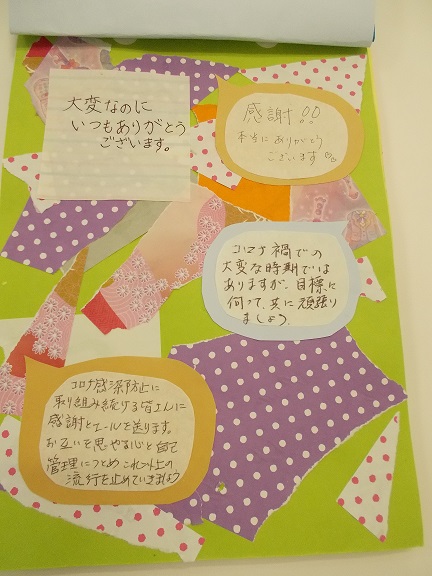 大変なのに
いつもありがとう
ございます。
感謝!!
本当にありがとう
ございます♡♡
コロナ禍での
大変な時期では
ありますが、目標に
向って、共に頑張り
ましょう。
コロナ感染防止に
取り組み続ける皆さんに
感謝とエールを送ります。
お互いを思いやる心と自己
管理につとめ これ以上の
流行を止めていきましょう